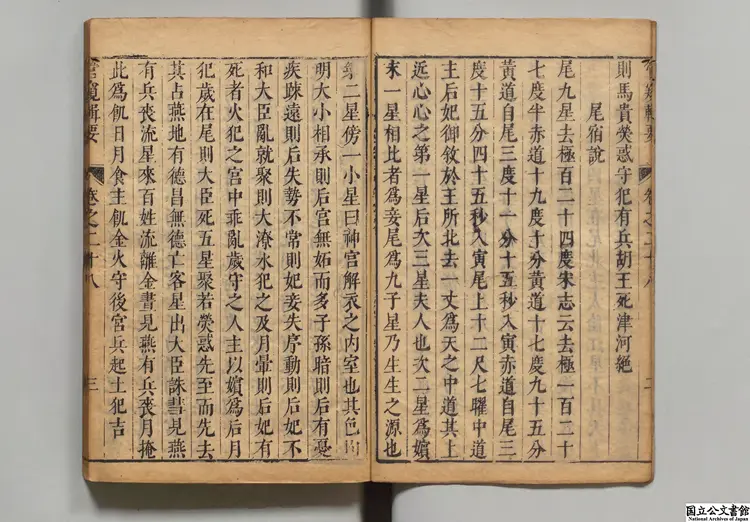 則馬貴熒惑守犯有兵胡王死津河絕
尾宿說
尾九星去極百二十四度宋志云去極一百二十
七度半赤道十九度十分黃道十七度九十五分
黃道自尾三度十一分十五秒入寅赤道自尾三
度十五分四十五秒入寅尾上十二尺七曜中道
主后妃御敘於王所北去一丈爲天之中道其上
近心心之第一星后次三星夫人也次二星爲嬪
末一星相比者爲妾尾爲九子星乃生生之源也
二星傍一小星曰神宮解衣之內室也其色均
明大小相承則后宮無妬而多子孫暗則后有憂
疾疎遠則后失勢不常則妃妾失序動則后妃不
和大臣亂就聚則大潦水犯之及月暈則后妃有
死者火犯之宮中乖亂歲守之人主以嬪爲后月
犯歲在尾則大臣死五星聚若熒惑先至而先去
其占燕地有德昌無德亡客星出大臣誅彗見燕
有兵喪流星來百姓流離金晝見燕有兵喪月掩
此爲飢日月食主飢金火守後宮兵起土犯吉
管窺輯要
卷之二十八
三
国立公文書館
National Archives of Japan